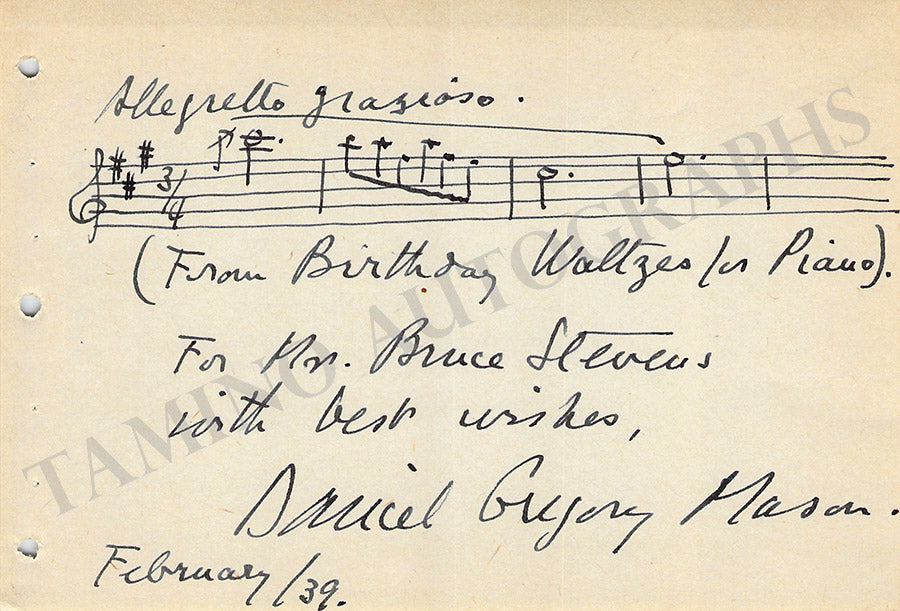 Allegretto grazioso.
3/4
(From Birthday Waltzes for Piano).
For Mr. Bruce Stevens
with best wishes,
Daniel Gregory Mason.
February/39.
TAMINO AUTOGRAPHS